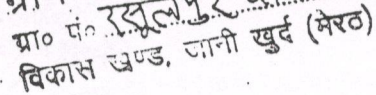 ग्रा० पं० रसूलपुर
विकास खण्ड, जानी खुर्द (मेरठ)